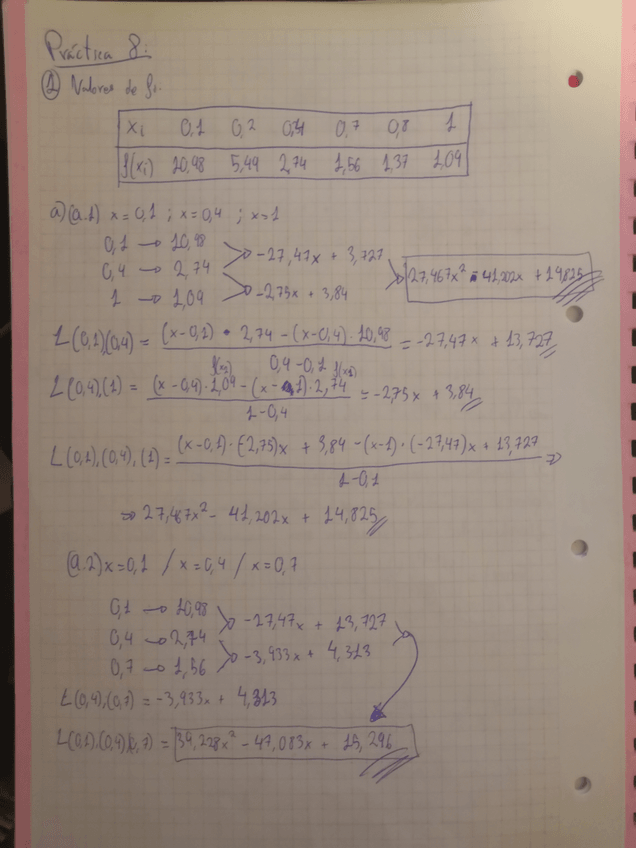 Práctica 8:
① Valores de fi.
xi 0,1 0,2 0,4 0,7 0,8 1
f(xi) 10,98 5,49 2,74 1,56 1,37 1,09
a) (a.1) x=0,1 ; x=0,4 ; x=1
0,1 → 10,98
-27,47x + 3,727
0,4 → 2,74
27,467x² - 41,202x + 14,825
-2,75x + 3,84
1 → 1,09
L(0,1)(0,4) = (x-0,1) · 2,74 - (x-0,4) · 10,98 / 0,4-0,1 = -27,47x + 13,727
f(x1) f(x0)
L(0,4),(1) = (x-0,4)·1,09 - (x-1)·2,74 / 1-0,4 = -2,75x + 3,84
L(0,1),(0,4),(1) = (x-0,1)·(-2,75)x + 3,84 - (x-1)·(-27,47)x + 13,727 / 1-0,1 ⇒
⇒ 27,467x² - 41,202x + 14,825
(a.2) x=0,1 / x=0,4 / x=0,7
0,1 → 10,98
-27,47x + 13,727
0,4 → 2,74
-3,933x + 4,313
0,7 → 1,56
L(0,4),(0,7) = -3,933x + 4,313
L(0,1),(0,4)(0,7) = 39,228x² - 47,083x + 15,296